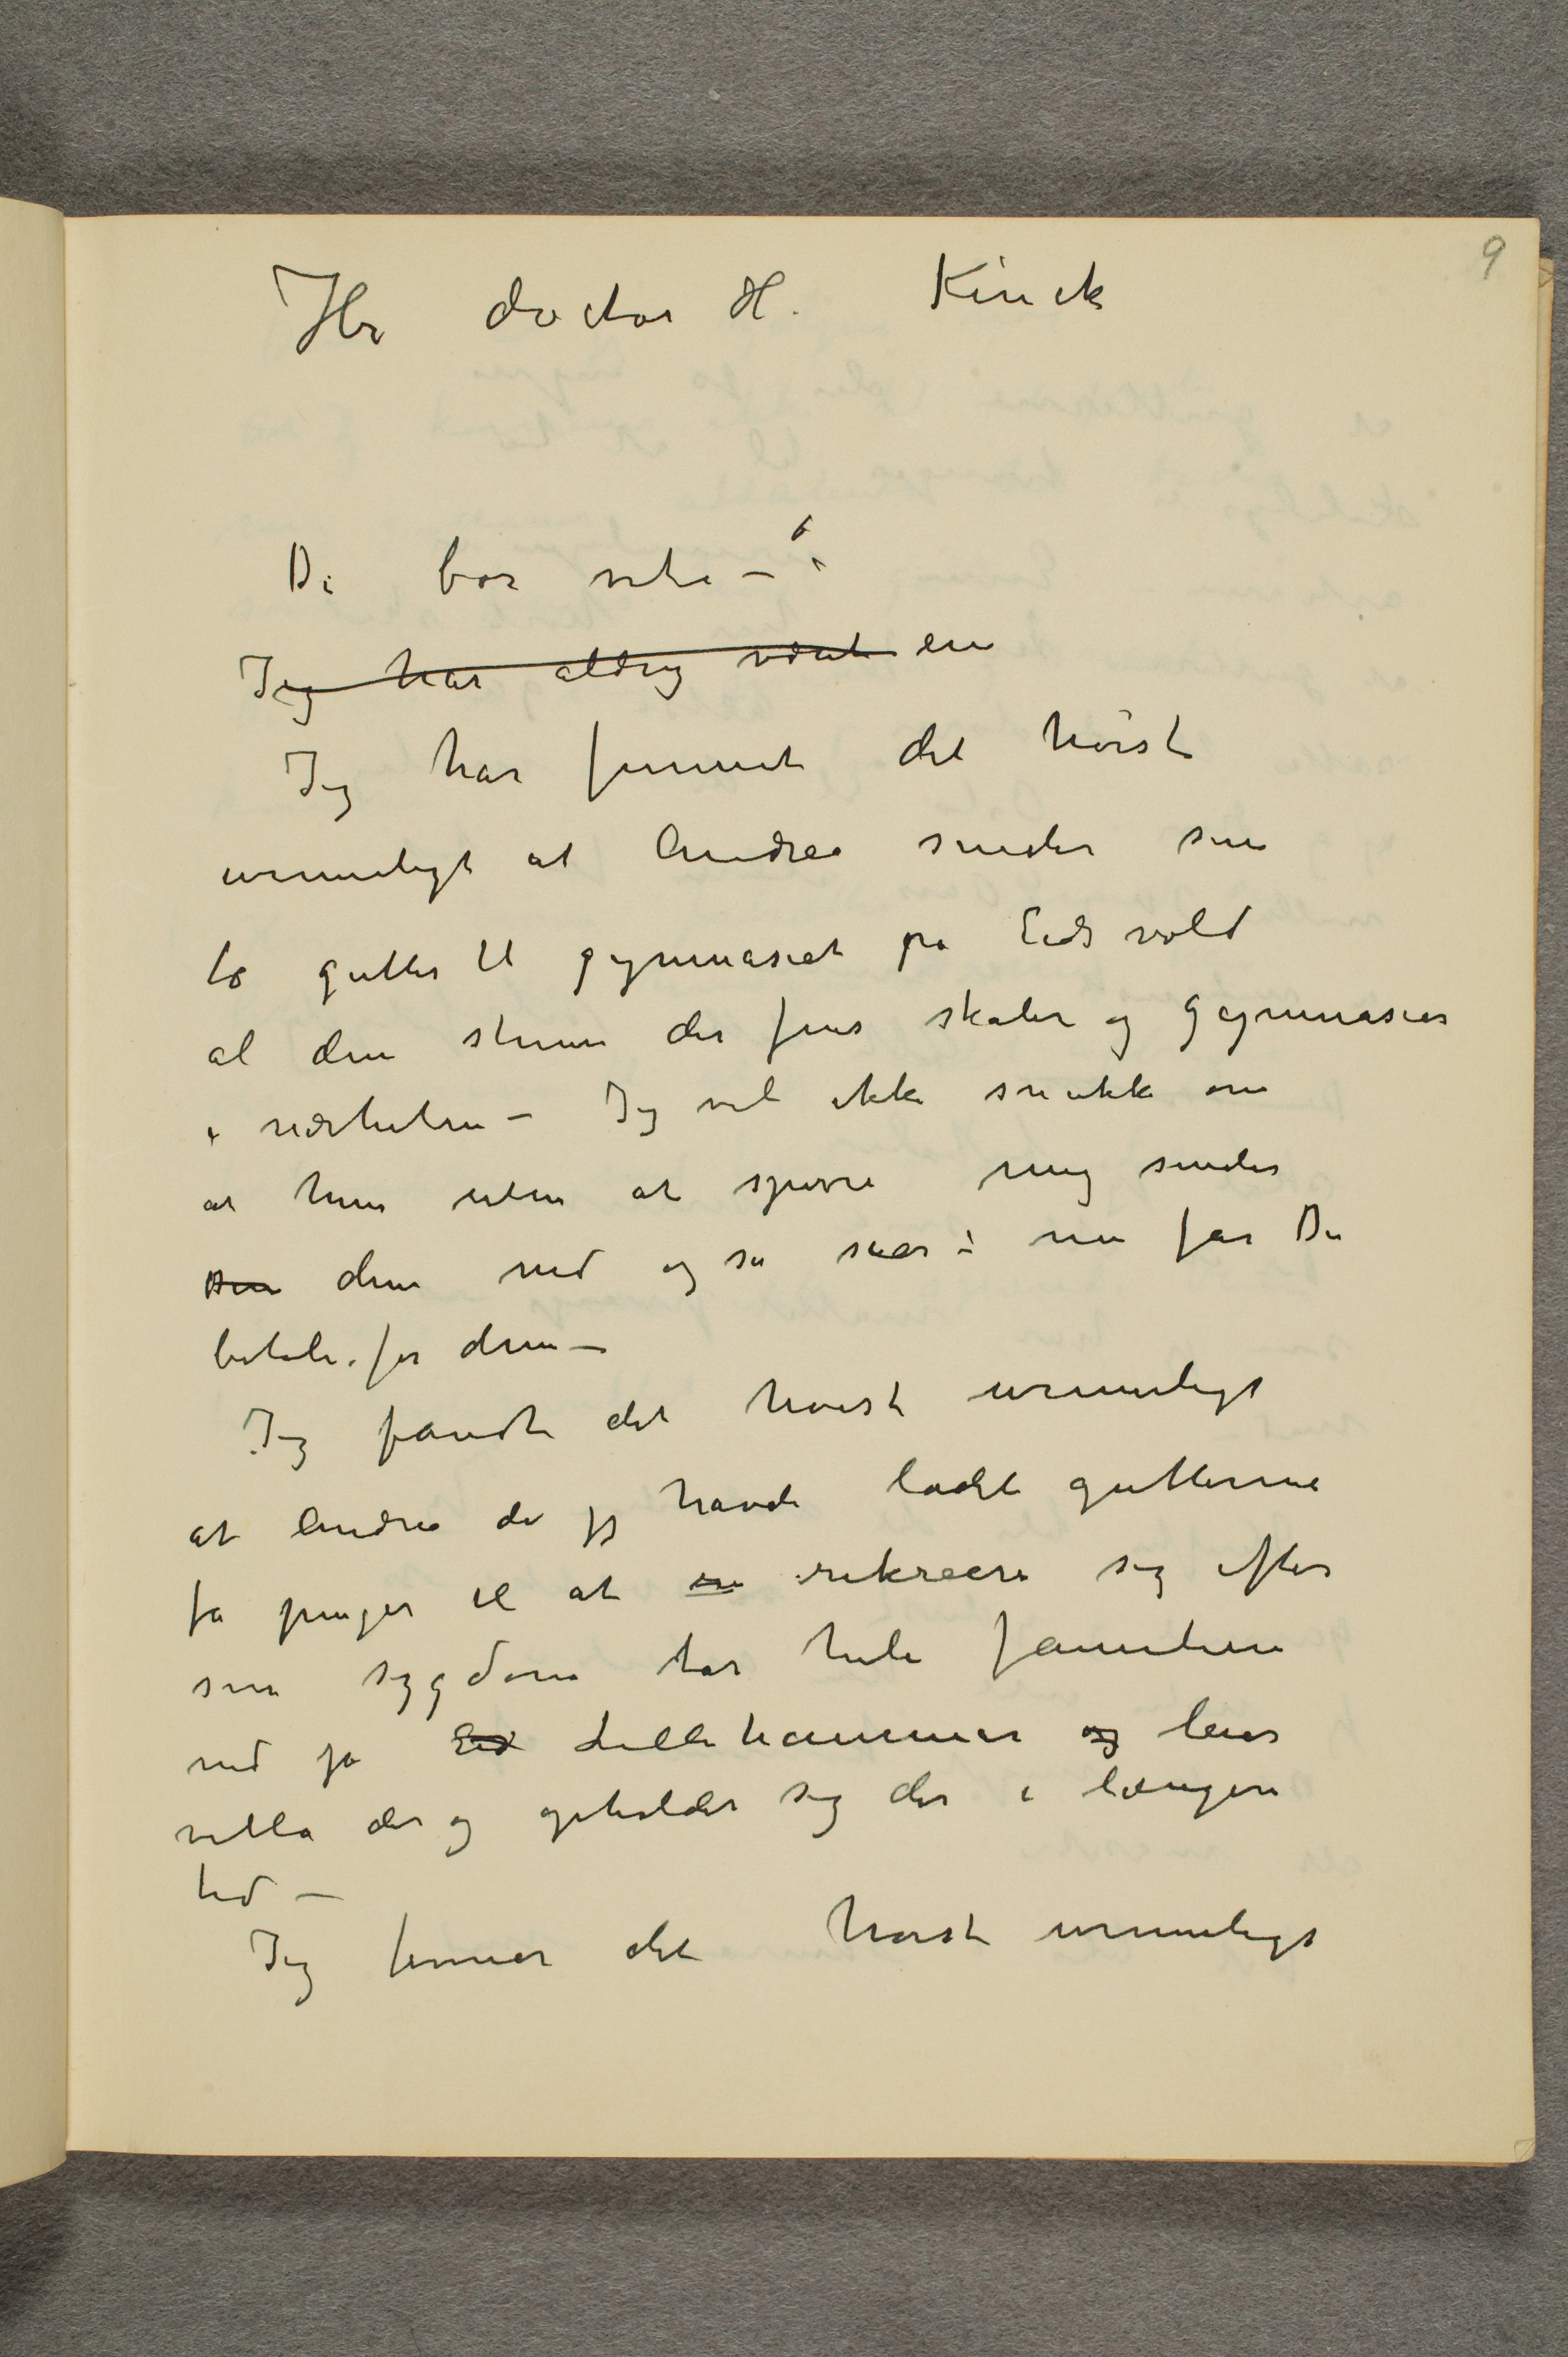 9
Hr doctor H. Kinck
De bør vite –
Jeg har aldrig været en
Jeg har funnet det høist
urimeligt at Andrea sender sine
to gutter til gymnasiet på Eidsvold
al den stund der fins skoler og gymnasier
i nærheten – Jeg vil ikke snakke om
at hun uten at spørre mig sender
dem ned og så sier: nu får Du
betale for dem –
Jeg fandt det høist urimeligt
at Andrea da jeg havde ladet gutterne
få penger til at rekreere sig efter
sin sygdom tar hele familien
ned på Eid Lillehammer og leier
villa der og opholder sig der i længere
tid –
Jeg finner det høist urimeligt